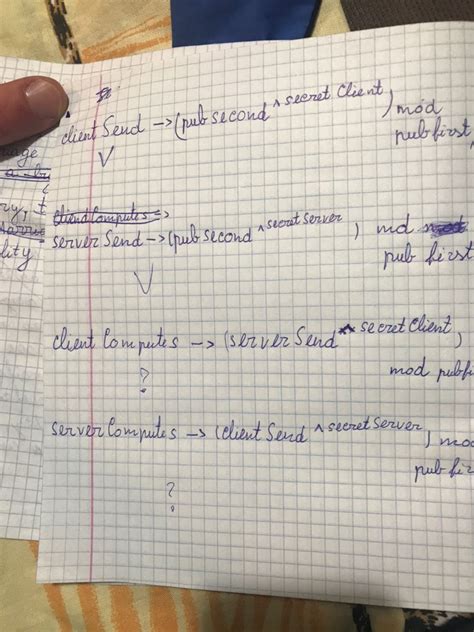 clientSend -> (pubsecond ^ secretClient) mod
pubfirst,
V
serverSend -> (pubsecond ^ secretServer) md
pub first
V
clientComputes -> (serverSend ^ secretClient)
mod pubfi
?
serverComputes -> (clientSend ^ secretServer, mod
pub firs
?